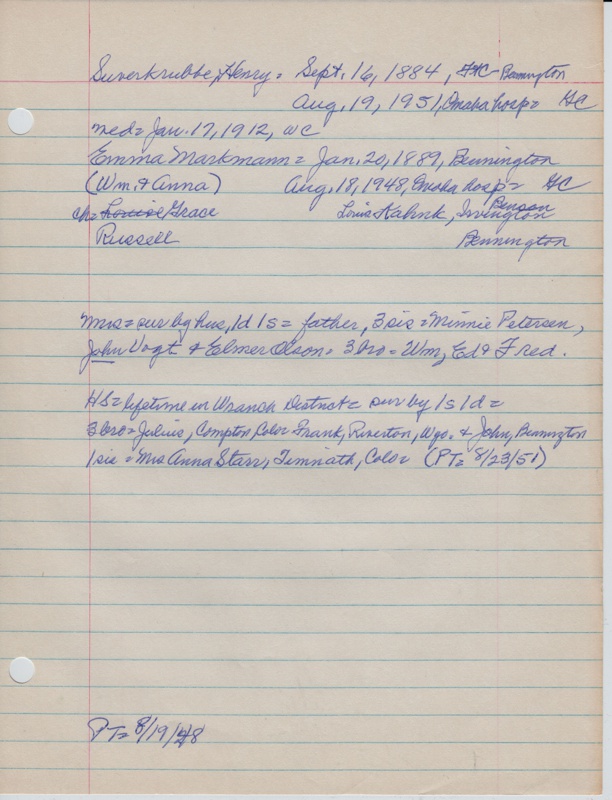 Suverkrubbe, Henry = Sept. 16, 1884, Bennington
Aug. 19, 1951, Omaha hosp = GC
med = Jan. 17, 1912, WC
Emma Markmann = Jan. 20, 1889, Bennington
(Wm. & Anna) Aug. 18, 1948, Omaha hosp = GC
Benson
ch = Louise Grace Louis Kahnk, Irvington
Russell Bennington
Mrs = sur by hus, 1d 1s = father, 3 sis = Minnie Petersen,
John Vogt & Elmer Olson = 3 bro = Wm, Ed & Fred.
HS = lifetime in District = sur by 1s 1d =
3 bro = Julius, Compton, Colo = Frank, Riverton, Wyo. & John, Bennington
1 sis = Mrs Anna Starr, Timnath, Colo = (PT = 8/23/51)
PT = 8/19/48